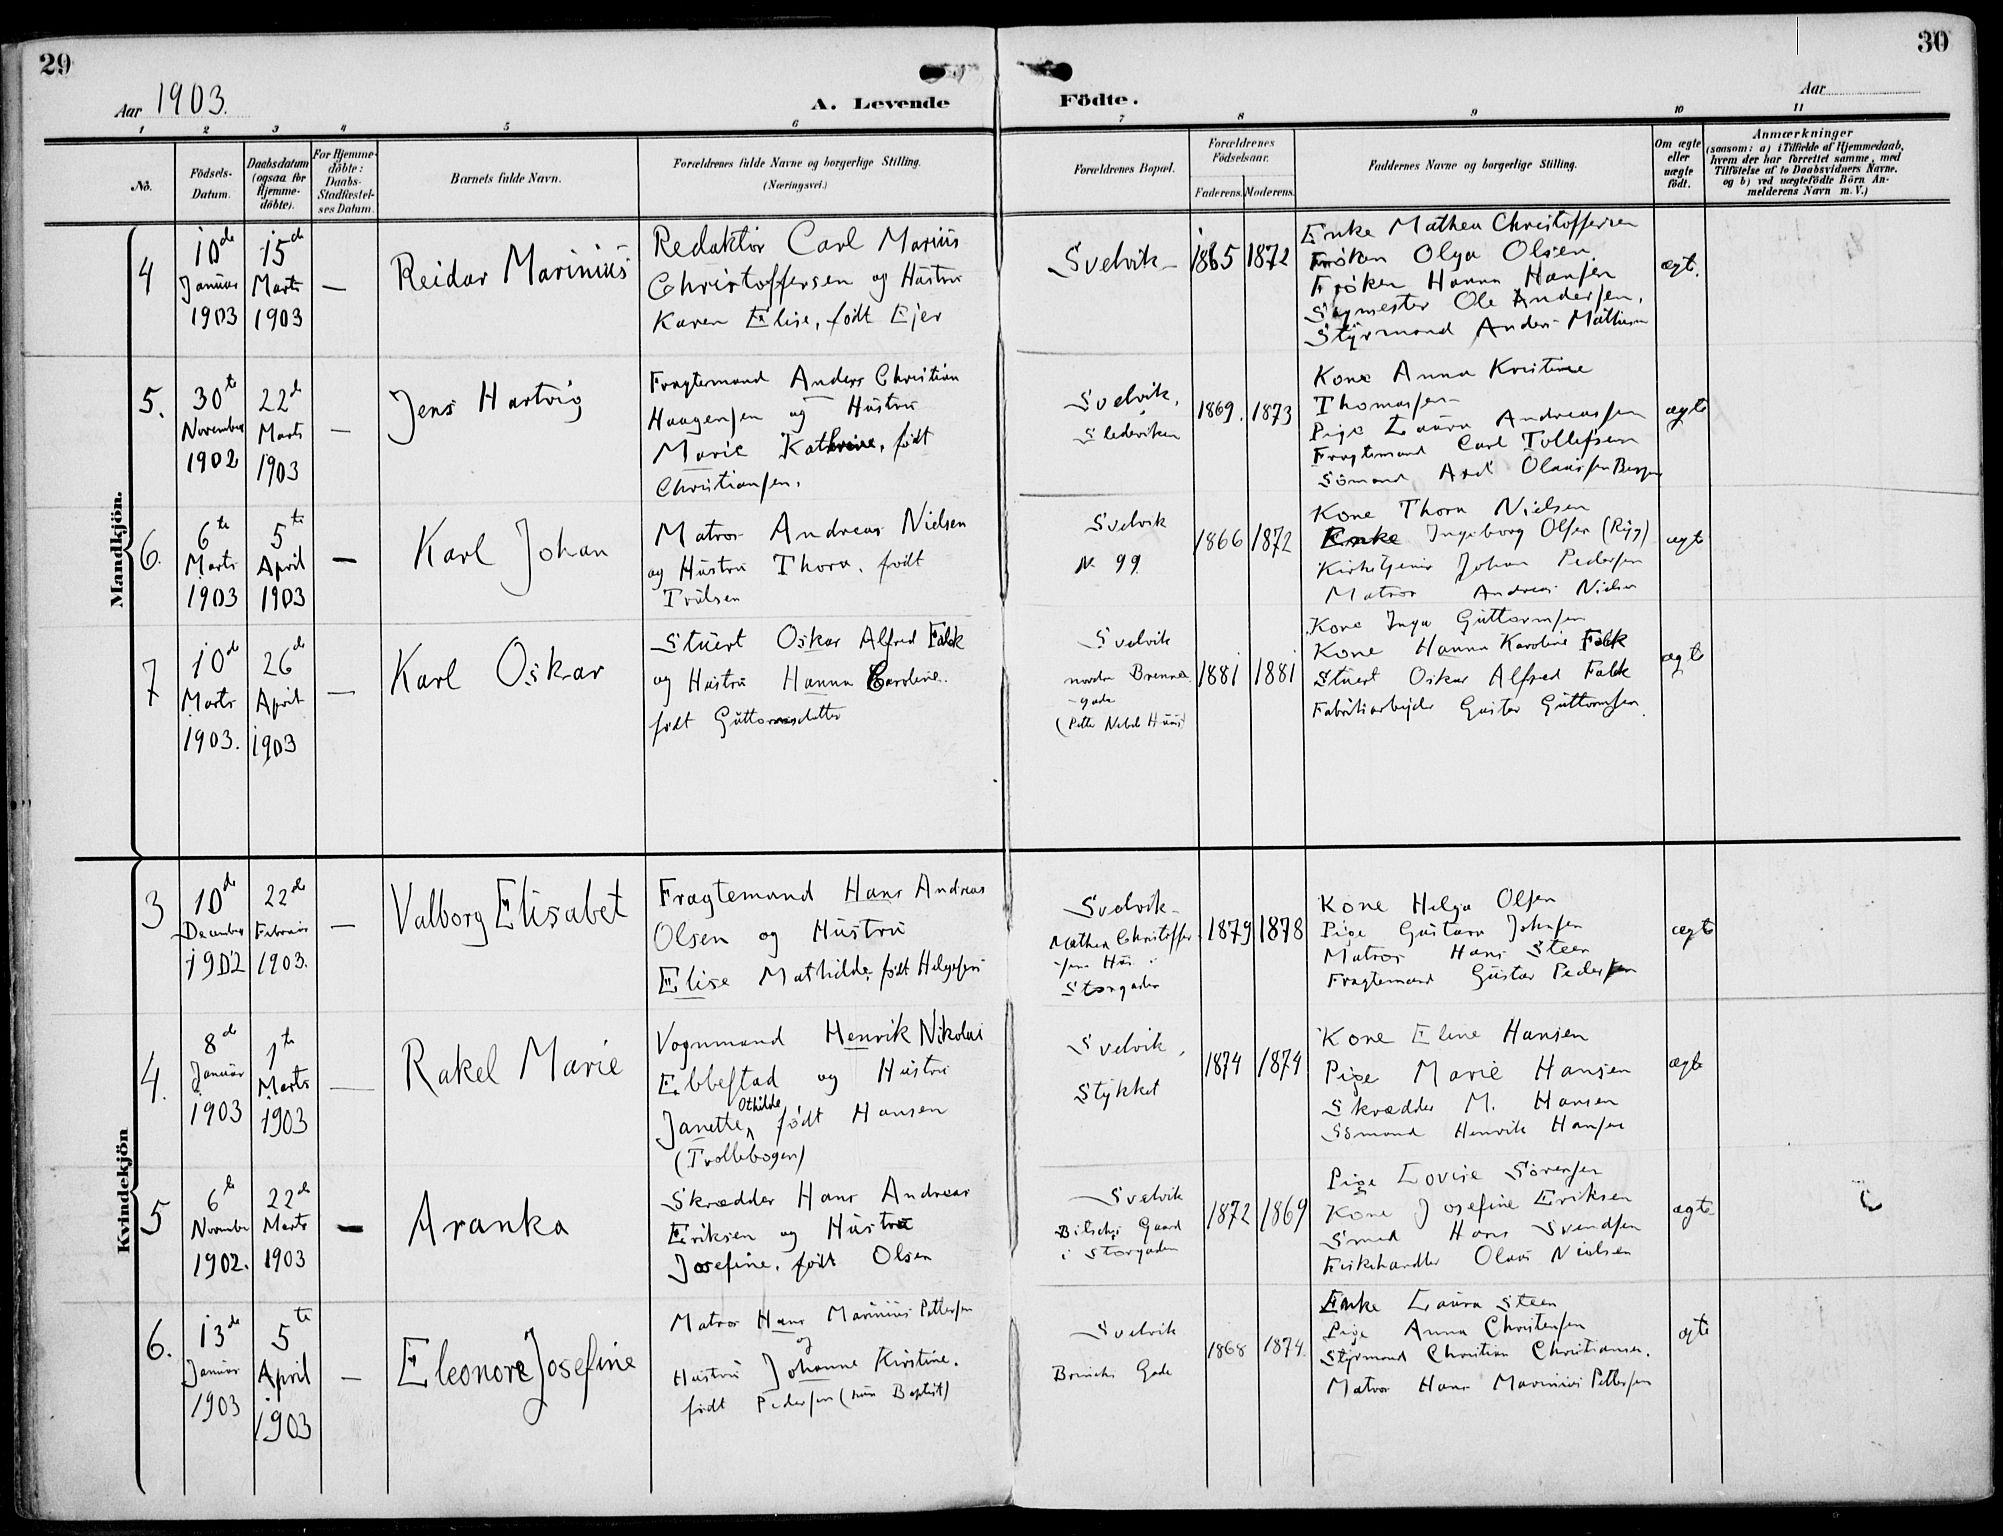 29
30
Aar 1903.
A. Levende Födte.
Aar
1 2 3 4 5 6 7 8 9 10 11
No.
Födsels-
Datum.
Daabsdatum
(ogsaa for
Hjemme-
döbte).
For Hjemme-
döbte:
Daabs-
Stadfæstel-
ses Datum.
Barnets fulde Navn.
Forældrenes fulde Navne og borgerlige Stilling.
(Næringsvei.)
Forældrenes Bopæl.
Forældrenes
Födselsaar.
Faderens. Moderens.
Faddernes Navne og borgerlige Stilling.
Om ægte
eller
uægte
födt.
Anmærkninger
(saasom: a) i Tilfælde af Hjemmedaab,
hvem der har forrettet samme, med
Tilföielse af to Daabsvidners Navne.
og b) ved uægtefödte Börn An-
melderens Navn m. V.)
Mandkjön.
4
10de
Januar
1903
15de
Marts
1903
—
Reidar Marinius
Redaktör Carl Marius
Christoffersen og Hustru
Karen Elise, født Ejer
Svelvik
1865
1872
Enke Mathea Christoffersen
Frøken Olga Olsen.
Frøken Hanna Hansen
Sagmester Ole Andersen.
Styrmand Anders Mathisen
ægt.
5.
30te
November
1902
22de
Marts
1903
—
Jens Hartvig
Fragtemand Anders Christian
Haagensen og Hustru
Marie Kathrine, født
Christiansen.
Svelvik,
Sledeviken
1869.
1873
Kone Anna Kristine
Thomassen
Pige Laura Andreassen
Fragtemand Carl Tollefsen
Sömand Axel Olaussen
ægte
6.
6te
Marts
1903
5te
April
1903
—
Karl Johan
Matros Andreas Nielsen
og Hustru Thora, født
Trulsen
Svelvik
N. 99.
1866
1872
Kone Thora Nielsen
Enke Ingeborg Olsen (Ryg)
Kirketjener Johan Pedersen
Matros Andreas Nielsen
ægte
7
10de
Marts
1903.
26de
April
1903
—
Karl Oskar
Stuert Oskar Alfred Falk
og Hustru Hanna Caroline.
født Guttormsdatter
Svelvik
nordre Brenner
-gade
(Petter Nebels Huus)
1881
1881
Kone Inga Guttormsen
Kone Hanna Karoline Falk
Stuert Oskar Alfred Falk
Fabrikarbejder Gustav Guttormsen
ægte
Kvindekjön
3
10de
December
1902
22de
Februar
1903.
—
Valborg Elisabet
Fragtemand Hans Andreas
Olsen og Hustru
Elise Mathilde, født Helgesen
Svelvik
Mathea Christoffer-
sens Hus i
Storgaden
1879
1878
Kone Helga Olsen
Pige Gustava Johnsen
Matros Hans Steen
Fragtemand Gustav Pedersen
ægte
4.
8de
Januar
1903
1te
Marts
1903
—
Rakel Marie
Vognmand Henrik Nikolai
Ebbestad og Hustru
Othilde
Janette, født Hansen
(Trollebogen)
Svelvik,
Stykket
1874
1874
Kone Eline Hansen
Pige Marie Hansen
Skrædder M. Hansen
Sömand Henrik Hansen
ægte
5
6te
November
1902.
22de
Marts
1903
—
Aranka
Skrædder Hans Andreas
Eriksen og Hustru
Josefine, født Olsen
Svelvik
Gaard
i Storgaden
1872
1869
Pige Lovise Sörensen
Kone Josefine Eriksen
Smed Hans Svendsen
Fiskehandler Olaus Nielsen
ægte
6.
13de
Januar
1903
5te
April
1903
—
Eleonore Josefine
Matros Hans Marinius Pettersen
og
Hustru Johanne Kirstine.
født Pedersen (nu Baptist)
Svelvik
Brinchs Gade
1868
1874.
Enke Laura Steen
Pige Anna Christensen
Styrmand Christian Christiansen.
Matros Hans Marinius Pettersen
ægte